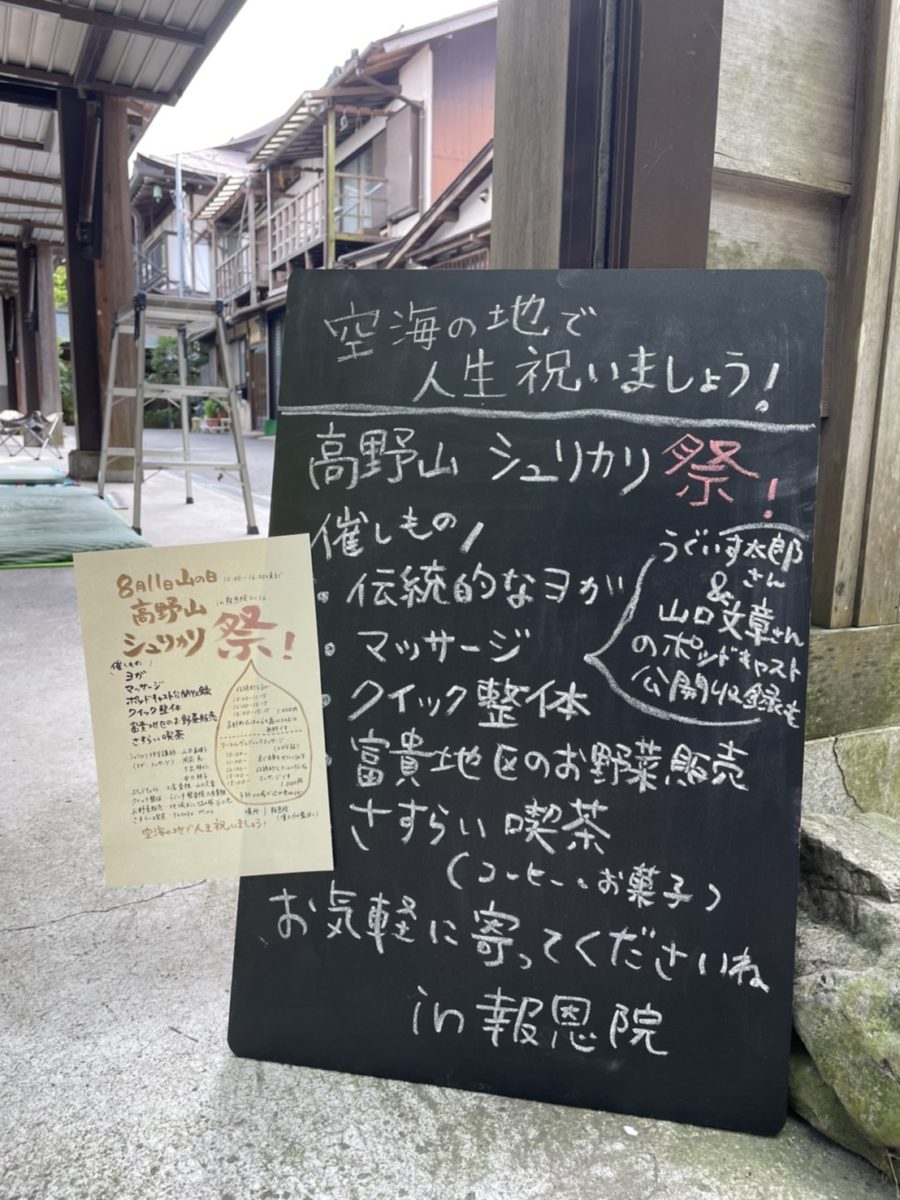 空海の地で
人生祝いましょう!
高野山 シュリカリ 祭!
催しもの
・伝統的なヨガ
・マッサージ
・クイック整体
・富貴地区のお野菜販売
さすらい喫茶
(コーヒー・お菓子)
お気軽に寄ってくださいね
in 報恩院
うぐいす太郎
さん
&
山口文章さん
のポッドキャスト
公開収録も
8月11日山の日
高野山
シュリカリ 祭!
催しもの
ヨガ
マッサージ
ポッドキャスト公開収録
クイック整体
富貴地区のお野菜販売
さすらい喫茶
空海の地で人生祝いましょう!